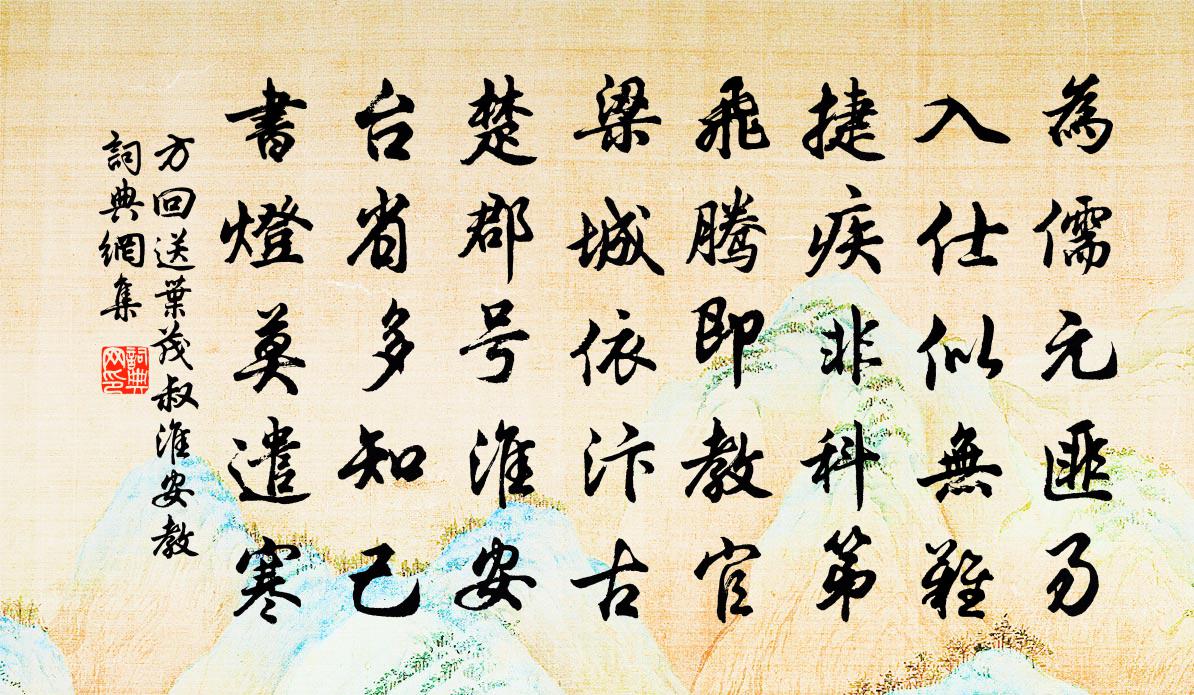 為儒元匪易
入仕似無難
捷疾非科第
飛騰即教官
梁城依汴古
楚郡号淮安
台省多知己
書燈莫遣寒
方回送葉茂叔淮安教
詞典網集
詞典网印